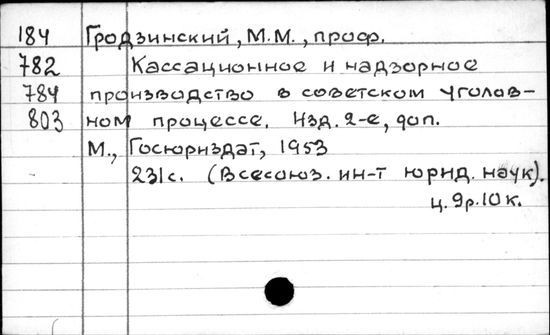 184 Гродзинский, М.М., проф.
782 Кассационное и надзорное
784 производство в советском уголов-
803 ном процессе. Изд. 2-е, доп.
М., Госюриздат, 1953
231с. (Всесоюз. ин-т юрид. наук).
ц. 9р.10к.